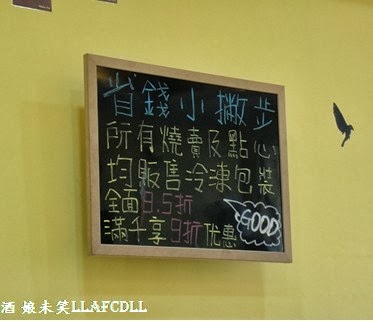 省錢小撇步
所有燒賣及點心
均販售冷凍包裝
全面8.5折
滿千享9折優惠
GOOD
酒娘未笑LLAFCDLL